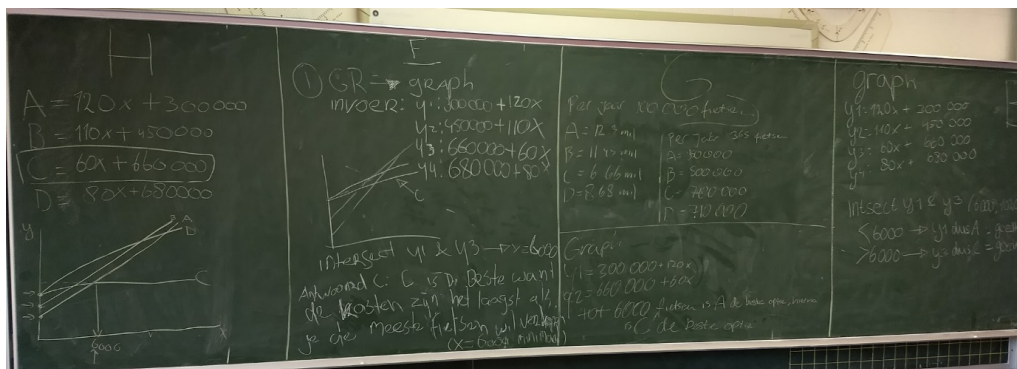 H
A = 120x + 300000
B = 110x + 450000
C = 60x + 660.000
D = 80x + 680000
y
A
C
x
6000
F
① GR → graph
invoer: y1: 300000 + 120x
y2: 450000 + 110X
y3: 660000 + 60x
y4: 680000 + 80x
C
intersect y1 & y3 → x = 6000
Antwoord C: C is De Beste want
de kosten zijn het laagst als
je de meeste fietsen wil
(x = 6000 minimaal)
G
Per jaar
A = 12.3 mil
B = 11.45 mil
C = 6.66 mil
D = 8.68 mil
Per jaar 365 fietsen
B = 500000
C = 700.000
D = 710.000
Graph:
y1 = 300.000 + 120x
y2 = 660.000 + 60x
Tot 6000 fietsen is A de beste optie,
is C de beste optie
graph
y1 = 120x + 300 000
y2 = 110x + 450 000
y3 = 60x + 660 000
y4 = 80x + 680 000
Intsect y1 & y3 (6000,
< 6000 → y1 dus A =
> 6000 → y3 dus C =